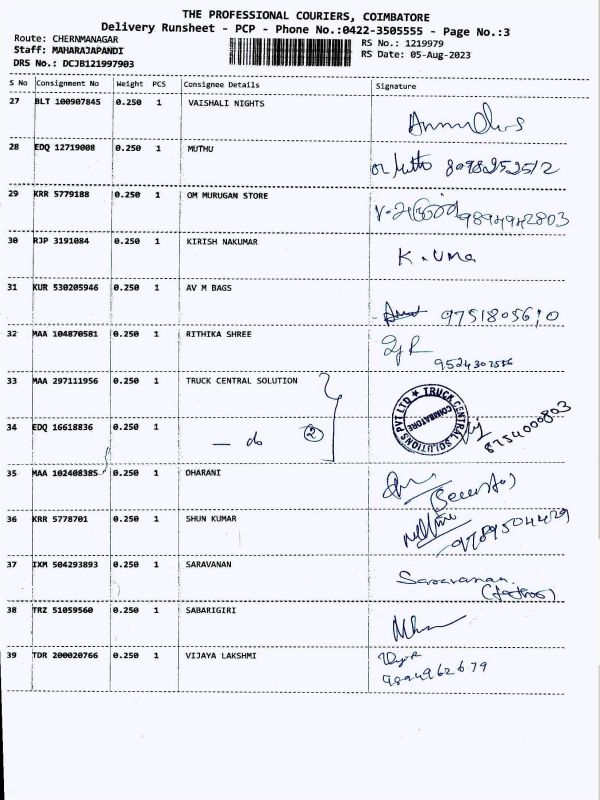 THE PROFESSIONAL COURIERS, COIMBATORE
Delivery Runsheet - PCP - Phone No.:0422-3505555 - Page No.:3
Route: CHERNMANAGAR
RS No.: 1219979
Staff: MAHARAJAPANDI
RS Date: 05-Aug-2023
DRS No.: DCJB121997903
S No Consignment No Weight PCS Consignee Details Signature
27 BLT 100907845 0.250 1 VAISHALI NIGHTS
28 EDQ 12719008 0.250 1 MUTHU 8098252512
29 KRR 5779188 0.250 1 OM MURUGAN STORE 9894942803
30 RJP 3191084 0.250 1 KIRISH NAKUMAR K. UMA
31 KUR 530205946 0.250 1 AV M BAGS 9751805610
32 MAA 104870581 0.250 1 RITHIKA SHREE 9524302556
33 MAA 297111956 0.250 1 TRUCK CENTRAL SOLUTION
TRUCK CENTRAL SOLUTIONS PVT LTD
COIMBATORE
8754000803
34 EDQ 16618836 0.250 1 — do 2
35 MAA 102408385 0.250 1 DHARANI
36 KRR 5778701 0.250 1 SHUN KUMAR 9789504429
37 IXM 504293893 0.250 1 SARAVANAN Saravanan
38 TRZ 51059560 0.250 1 SABARIGIRI
39 TDR 200020766 0.250 1 VIJAYA LAKSHMI
9894962679